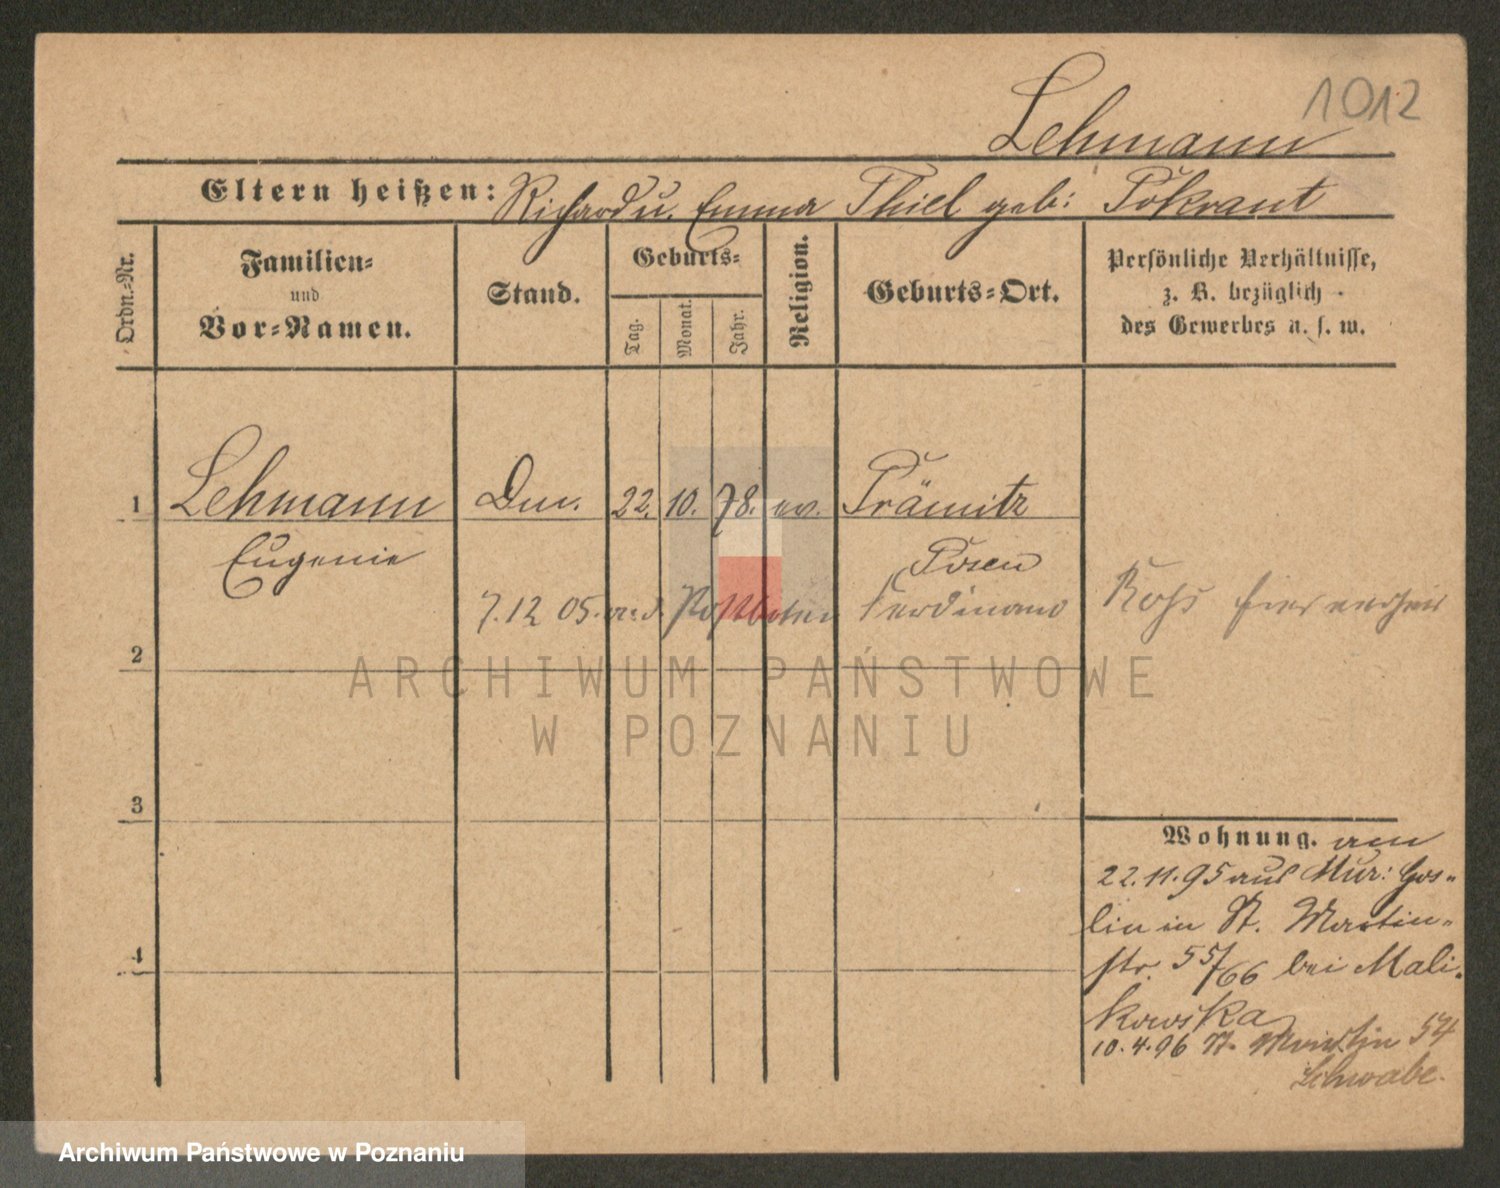 1012
Lehmann
Eltern heißen: Richard u. Emma Thiel geb: Pokrant
Ordn.-Nr.
Familien-
und
Vor-Namen.
Stand.
Geburts-
Tag.
Monat.
Jahr.
Religion.
Geburts-Ort.
Persönliche Verhältnisse,
z. B. bezüglich
des Gewerbes u. s. w.
1 Lehmann 22. 10. 78. ev. Prämitz
Eugenie Posen
7.12 05. Postboten Ferdinand
2
3
4
Wohnung. am
22.11.95 aus Mur: Gos-
lin in St. Martin-
str. 55/66 bei Mali-
kowska
10.4.96 St. Martin 54
Schwabe.
ARCHIWUM PAŃSTWOWE
W POZNANIU
Archiwum Państwowe w Poznaniu